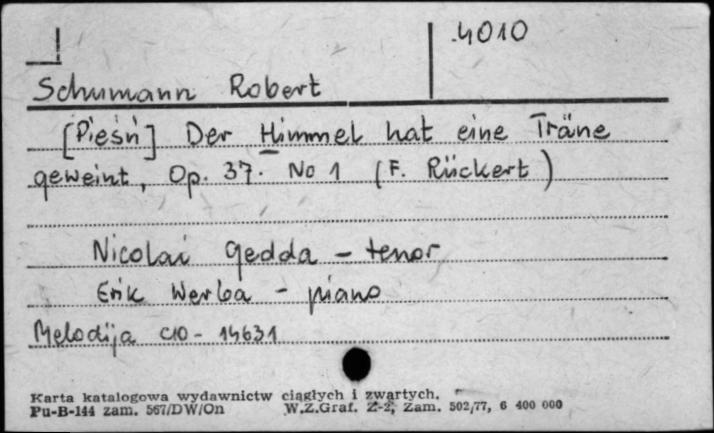 4010
Schumann Robert
[Pieśń] Der Himmel hat eine Träne
geweint, Op. 37. No 1 (F. Rückert)
Nicolai Gedda - tenor
Erik Werba - piano
Melodija C10 - 14631
Karta katalogowa wydawnictw ciągłych i zwartych.
Pu-B-144 zam. 567/DW/On W.Z.Graf. Z-2, Zam. 502/77, 6 400 000